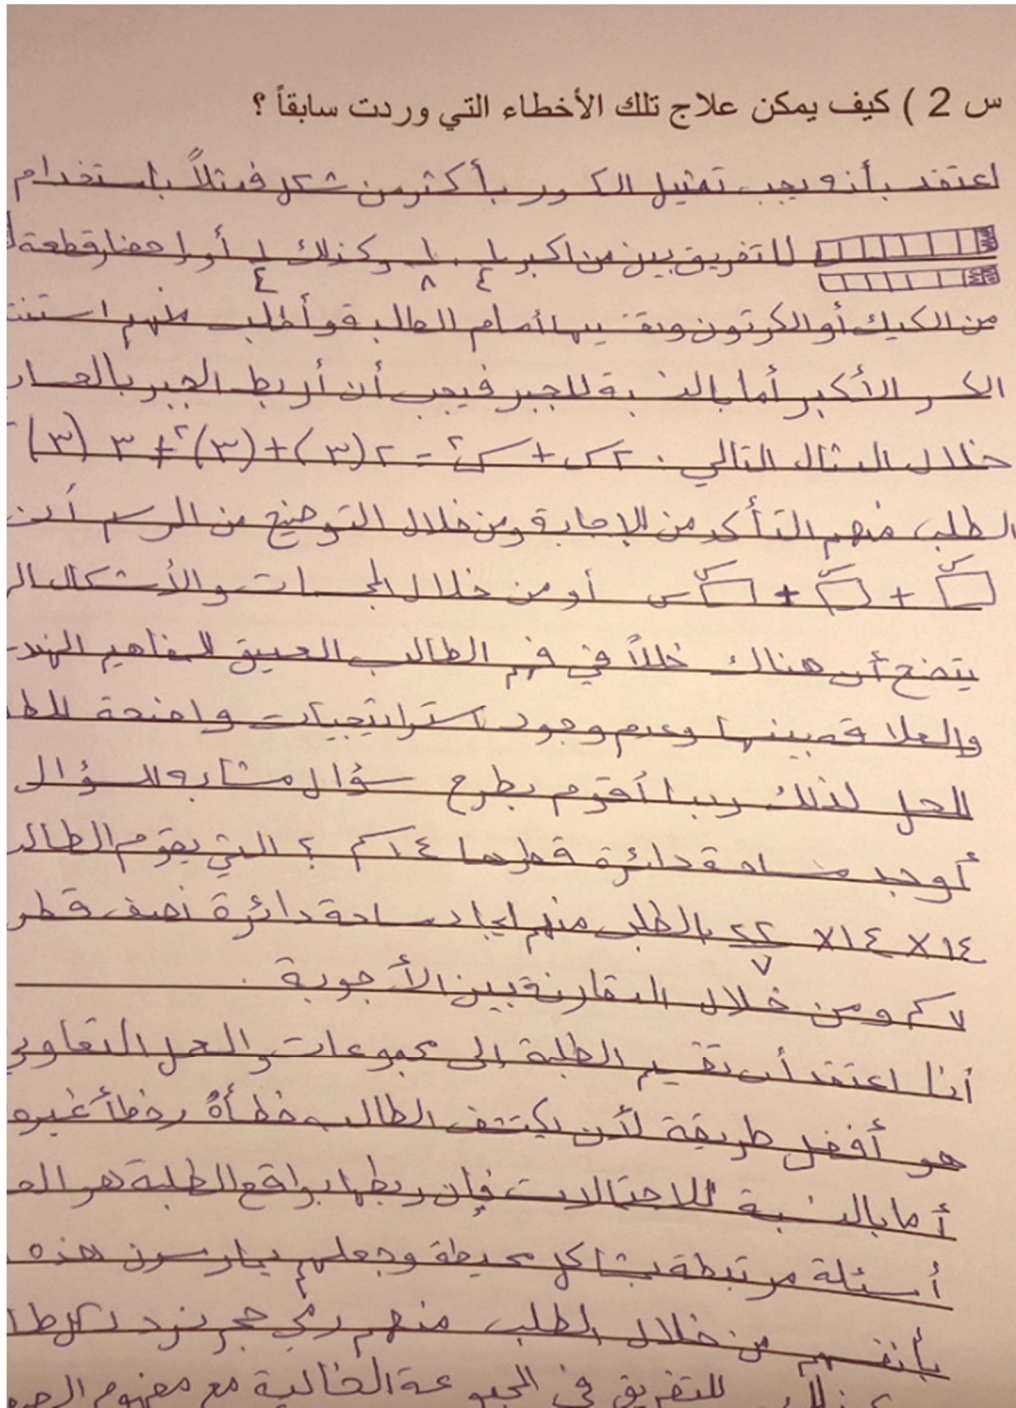 س 2 ) كيف يمكن علاج تلك الأخطاء التي وردت سابقاً ؟
اعتقد بأنه يجب تمثيل الكسور بأكثر من شكل فمثلاً باستخدام
للتفريق بين من اكبر ١/٤ ، ١/٨ وكذلك ١/٤ أو احضار قطعة
من الكيك أو الكرتون وتقسيمها أمام الطلبة وأطلب منهم
الكسر الأكبر أما بالنسبة للجبر فيجب أن أربط الجبر
خلال المثال التالي . ٢س + س٢ = ٢(٣) + (٣)٢ ≠ ٣(٣)
الطلب منهم التأكد من الإجابة ومن خلال التوضيح من الرسم أن
س + س + س س أو من خلال المجسمات والأشكال
يتضح أن هناك خللاً في فهم الطالب العميق للمفاهيم
والعلاقة بينها وعدم وجود استراتيجيات واضحة
للحل لذلك ربما أقوم بطرح سؤال مشابه للسؤال
أوجد مساحة دائرة قطرها ١٤ سم ؟ التي يقوم
١٤ × ١٤ × ٢٢/٧ بالطلب منهم ايجاد مساحة دائرة نصف قطر
٧ سم ومن خلال المقارنة بين الأجوبة .
أنا اعتقد أن تقسيم الطلبة الى مجموعات والحل
هو أفضل طريقة لأن يكتشف الطالب خطأه وخطأ غيره
أما بالنسبة للاحتمالات فإن ربطها بواقع الطلبة هو
أسئلة مرتبطة بمشاكل محيطة وجعلهم يمارسون هذه
بأنفسهم من خلال الطلب منهم رمي حجر نرد
للتفريق في المجموعة الخالية مع مفهوم